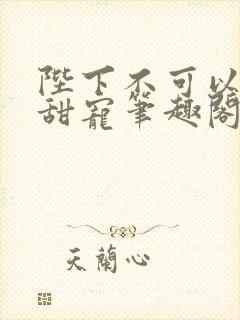 陛下不可以
甜寵筆趣閣
天蘭心